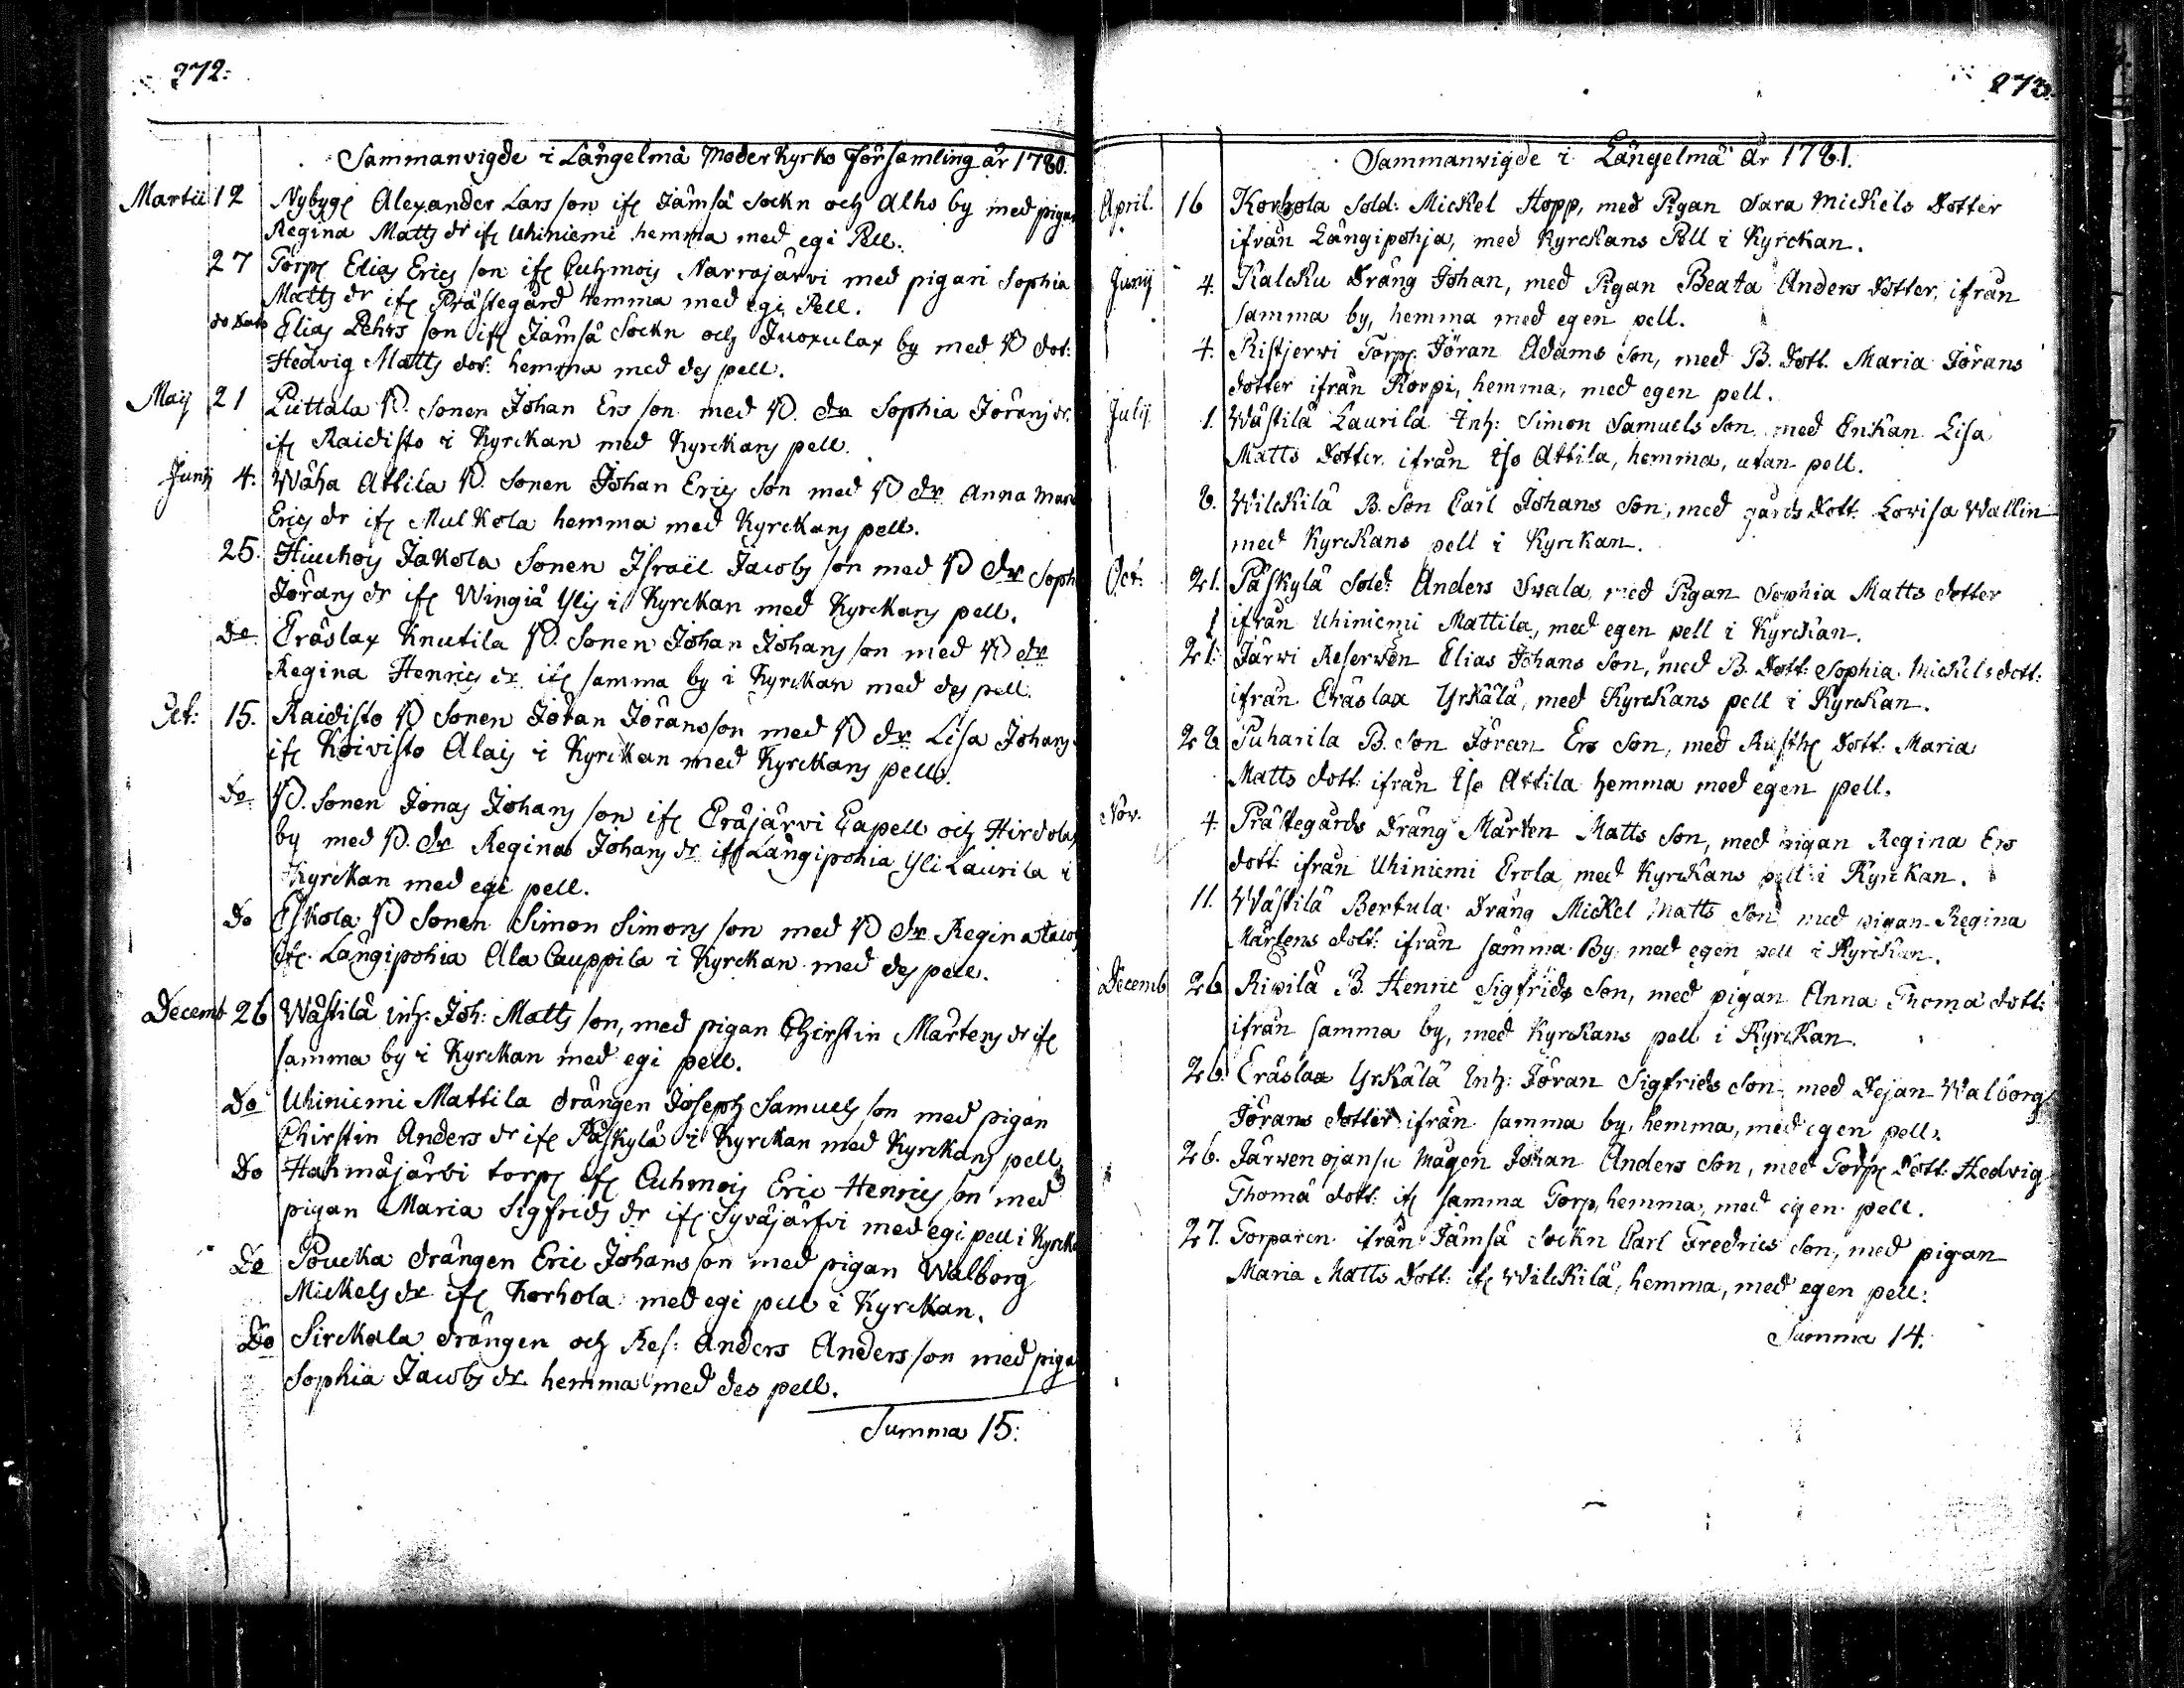 272:
Sammanvigde i Längelmä Moder Kyrko Församling år 1780.
Martii 12 Nybygg Alexander Lars son ifr Jämsä Sockn och Alho by med pigan
Regina Matts dr ifr Uhiniemi hemma med egi Pell.
27 Torp Elias Erics son ifr Cuhmois Narvajärvi med pigan Sophia
Matts dr ifr Prästegård hemma med egi Pell.
do Dato Elias Pehrs son ifr Jämsä Sockn och Juoxulax by med B dot:
Hedvig Matts dot: hemma med des pell.
Maij 21 Puttala B. Sonen Johan Ers son med B. dr Sophia Jörans dr.
ifr Raidisto i Kyrckan med Kyrckans pell.
Junij 4. Wäha Attila B. Sonen Johan Erics Son med B dr Anna Mari
Erics dr ifr Mulkola hemma med Kyrckans pell.
25. Hiuckois Jakola Sonen Israël Jacobs son med B dr Soph
Jörans dr ifr Wingiä Ylis i Kyrckan med Kyrckans pell.
Do Eräslax Knutila B. Sonen Johan Johans son med B dr
Regina Henrics dr ifr samma by i Kyrckan med des pell.
Oct: 15. Raidisto B Sonen Jöran Jöransson med B dr Lisa Johans
ifr Koivisto Alais i Kyrckan med Kyrckans pell.
Do B. Sonen Jonas Johans son ifr Eräjärvi Capell och Hirdolax
by med B. dr Regina Johans dr ifr Längipohia Yli Laurila i
Kyrckan med egi pell.
Do Eskola B Sonen Simon Simons son med B dr Regina Jacobs
ifr Längipohia Ala Cauppila i Kyrckan med des pell.
Decemb 26 Wästilä inh: Joh: Matts son, med pigan Chirstin Mårtens dr ifr
samma by i Kyrckan med egi pell.
Do Uhiniemi Mattila drängen Joseph Samuels son med pigan
Chirstin Anders dr ifr Påskylä i Kyrckan med Kyrckans pell
Do Hahmajärvi torp ifr Cuhmois Eric Henrics son med
pigan Maria Sigfrids dr ifr Syväjärfvi med egi pell i Kyrcka
Do Poucka drängen Eric Johans son med pigan Walborg
Mickels dr ifr Korhola med egi pell i Kyrckan.
Do Sirckala drängen och Res: Anders Anders son med piga
Sophia Jacobs dr hemma med des pell.
Summa 15:
273.
Sammanvigde i Längelmä år 1781.
April. 16 Korhola Sold: Mickel Hopp, med Pigan Sara Mickels Dotter
ifrån Längipohja, med Kyrckans Pell i Kyrckan.
Junij 4. Kalcku Dräng Johan, med Pigan Beata Anders Dotter, ifrån
samma by, hemma med egen pell.
4. Ristjerwi Torp: Jöran Adams Son, med B. Dott. Maria Jörans
dotter ifrån Korpi, hemma, med egen pell.
Julij 1. Wästilä Laurila Inh: Simon Samuels Son med Enkan Lisa
Matts Dotter ifrån Iso Attila, hemma, utan pell.
8. Wilckilä B. Son Carl Johans Son, med gårds Dott. Lovisa Wallin
med Kyrckans pell i Kyrckan.
Oct: 21. Påskylä Sold: Anders Swala, med Pigan Sophia Matts dotter
ifrån Uhiniemi Mattila, med egen pell i Kyrckan.
21. Järwi Reserven Elias Johans Son, med B. Dott. Sophia Mickels dott:
ifrån Eräslax Yrkälä, med Kyrckans pell i Kyrckan.
28 Puharila B. Son Jöran Ers Son, med Rusth Dott: Maria
Matts dott: ifrån Iso Attila hemma med egen pell.
Nov. 4. Prästegårds Dräng Mårten Matts Son, med pigan Regina Ers
dott: ifrån Uhiniemi Erola, med Kyrckans pell i Kyrckan.
11. Wästilä Bertula Dräng Mickel Matts Son med pigan Regina
Mårtens dott: ifrån samma By, med egen pell i Kyrckan.
Decemb 26 Riwilä B. Henric Sigfrids Son, med pigan Anna Thoma dott:
ifrån samma by, med Kyrckans pell i Kyrckan.
26. Eräslax Yrkälä Inh: Jöran Sigfrids Son, med Dejan Walborg
Jörans dotter ifrån samma by, hemma, med egen pell.
26. Järwen ojansu Mågen Johan Anders Son, med Torp Dott: Hedvig
Thoma dott: ifr samma Torp, hemma, med egen pell.
27. Torparen ifrån Jämsä Sockn Carl Fredrics Son, med pigan
Maria Matts Dott: ifr Wilckilä, hemma, med egen pell.
Summa 14.